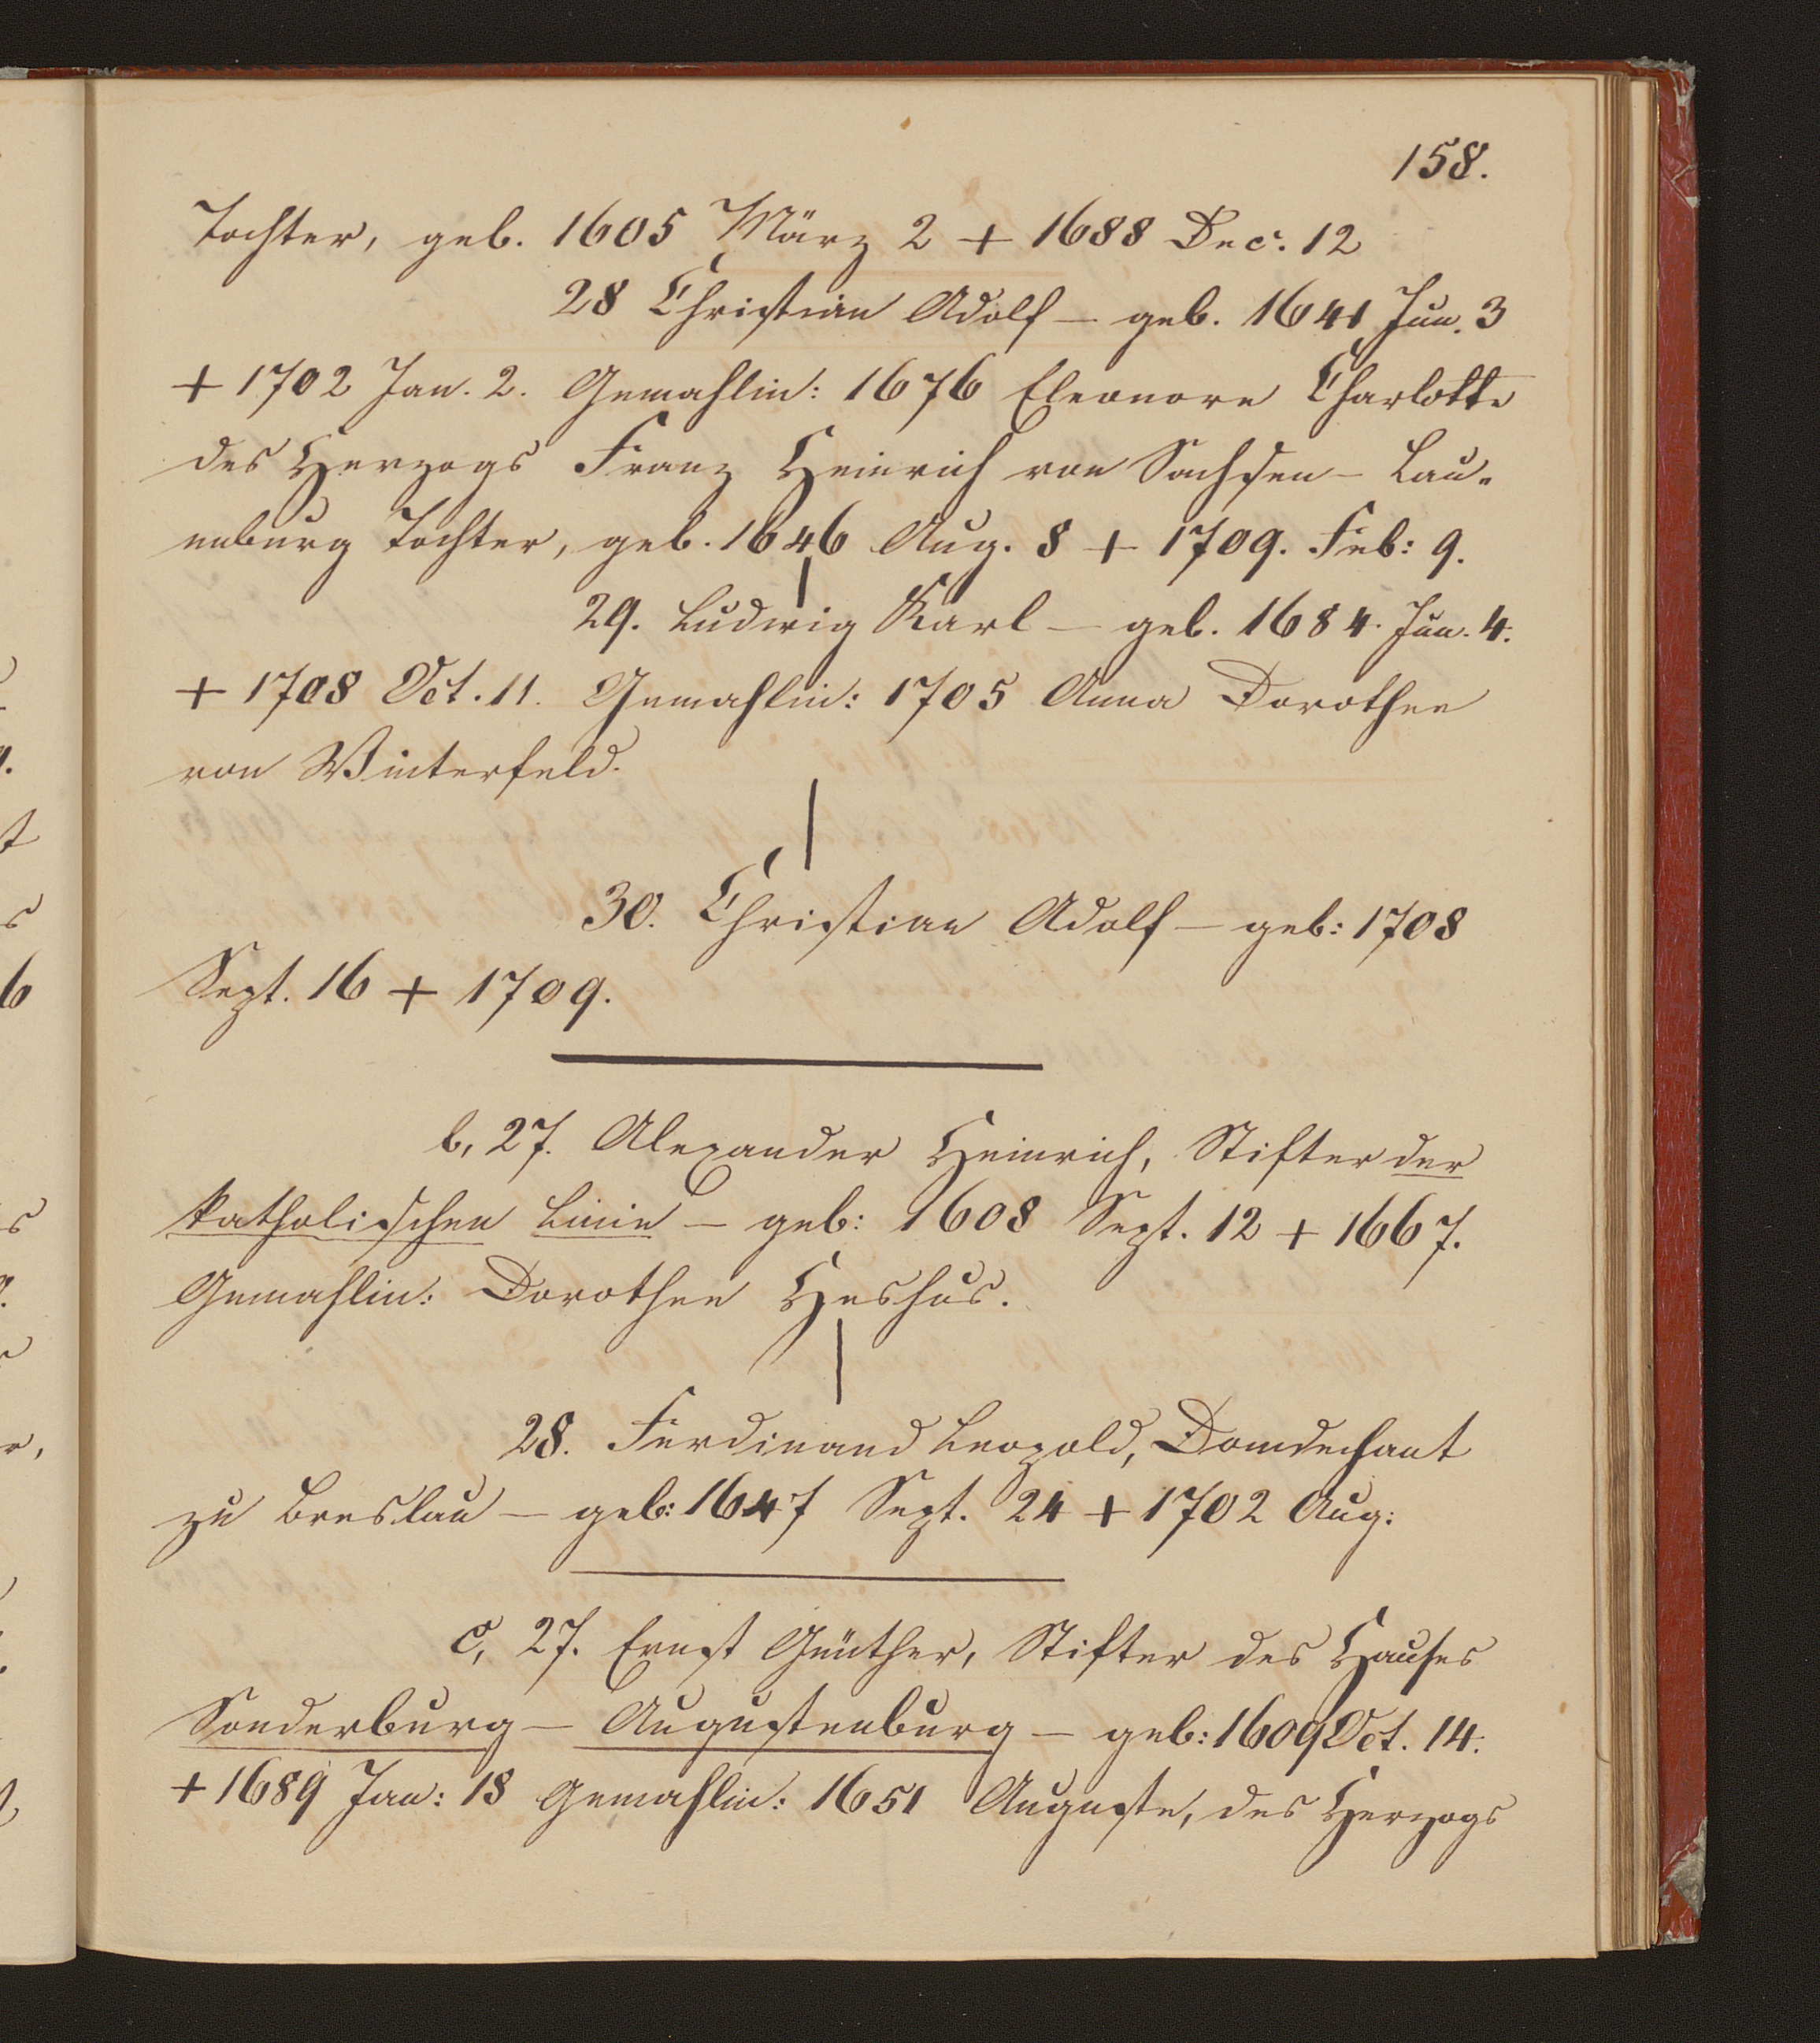 158.
Tochter, geb. 1605 März 2 + 1688 Dec. 12
28 Christian Adolf — geb. 1641 Jun. 3
+ 1702 Jan. 2. Gemahlin: 1676 Eleonore Charlotte
des Herzogs Franz Heinrich von Sachsen - Lau-
enburg Tochter, geb. 1646 Aug. 8 + 1709. Feb: 9.
29. Ludwig Karl — geb. 1684. Jun. 4.
+ 1708 Oct. 11. Gemahlin: 1705 Anna Dorothee
von Winterfeld.
30. Christian Adolf — geb: 1708
Sept. 16 + 1709.
b, 27. Alexander Heinrich, Stifter der
katholischen Linie — geb: 1608 Sept. 12 + 1667.
Gemahlin: Dorothee Heshus.
28. Ferdinand Leopold, Domdechant
zu Breslau — geb: 1647 Sept. 24 + 1702 Aug:
c, 27. Ernst Günther, Stifter des Hauses
Sonderburg — Augustenburg — geb: 1609 Oct. 14.
+ 1689 Jan: 18 Gemahlin: 1651 Auguste, des Herzogs